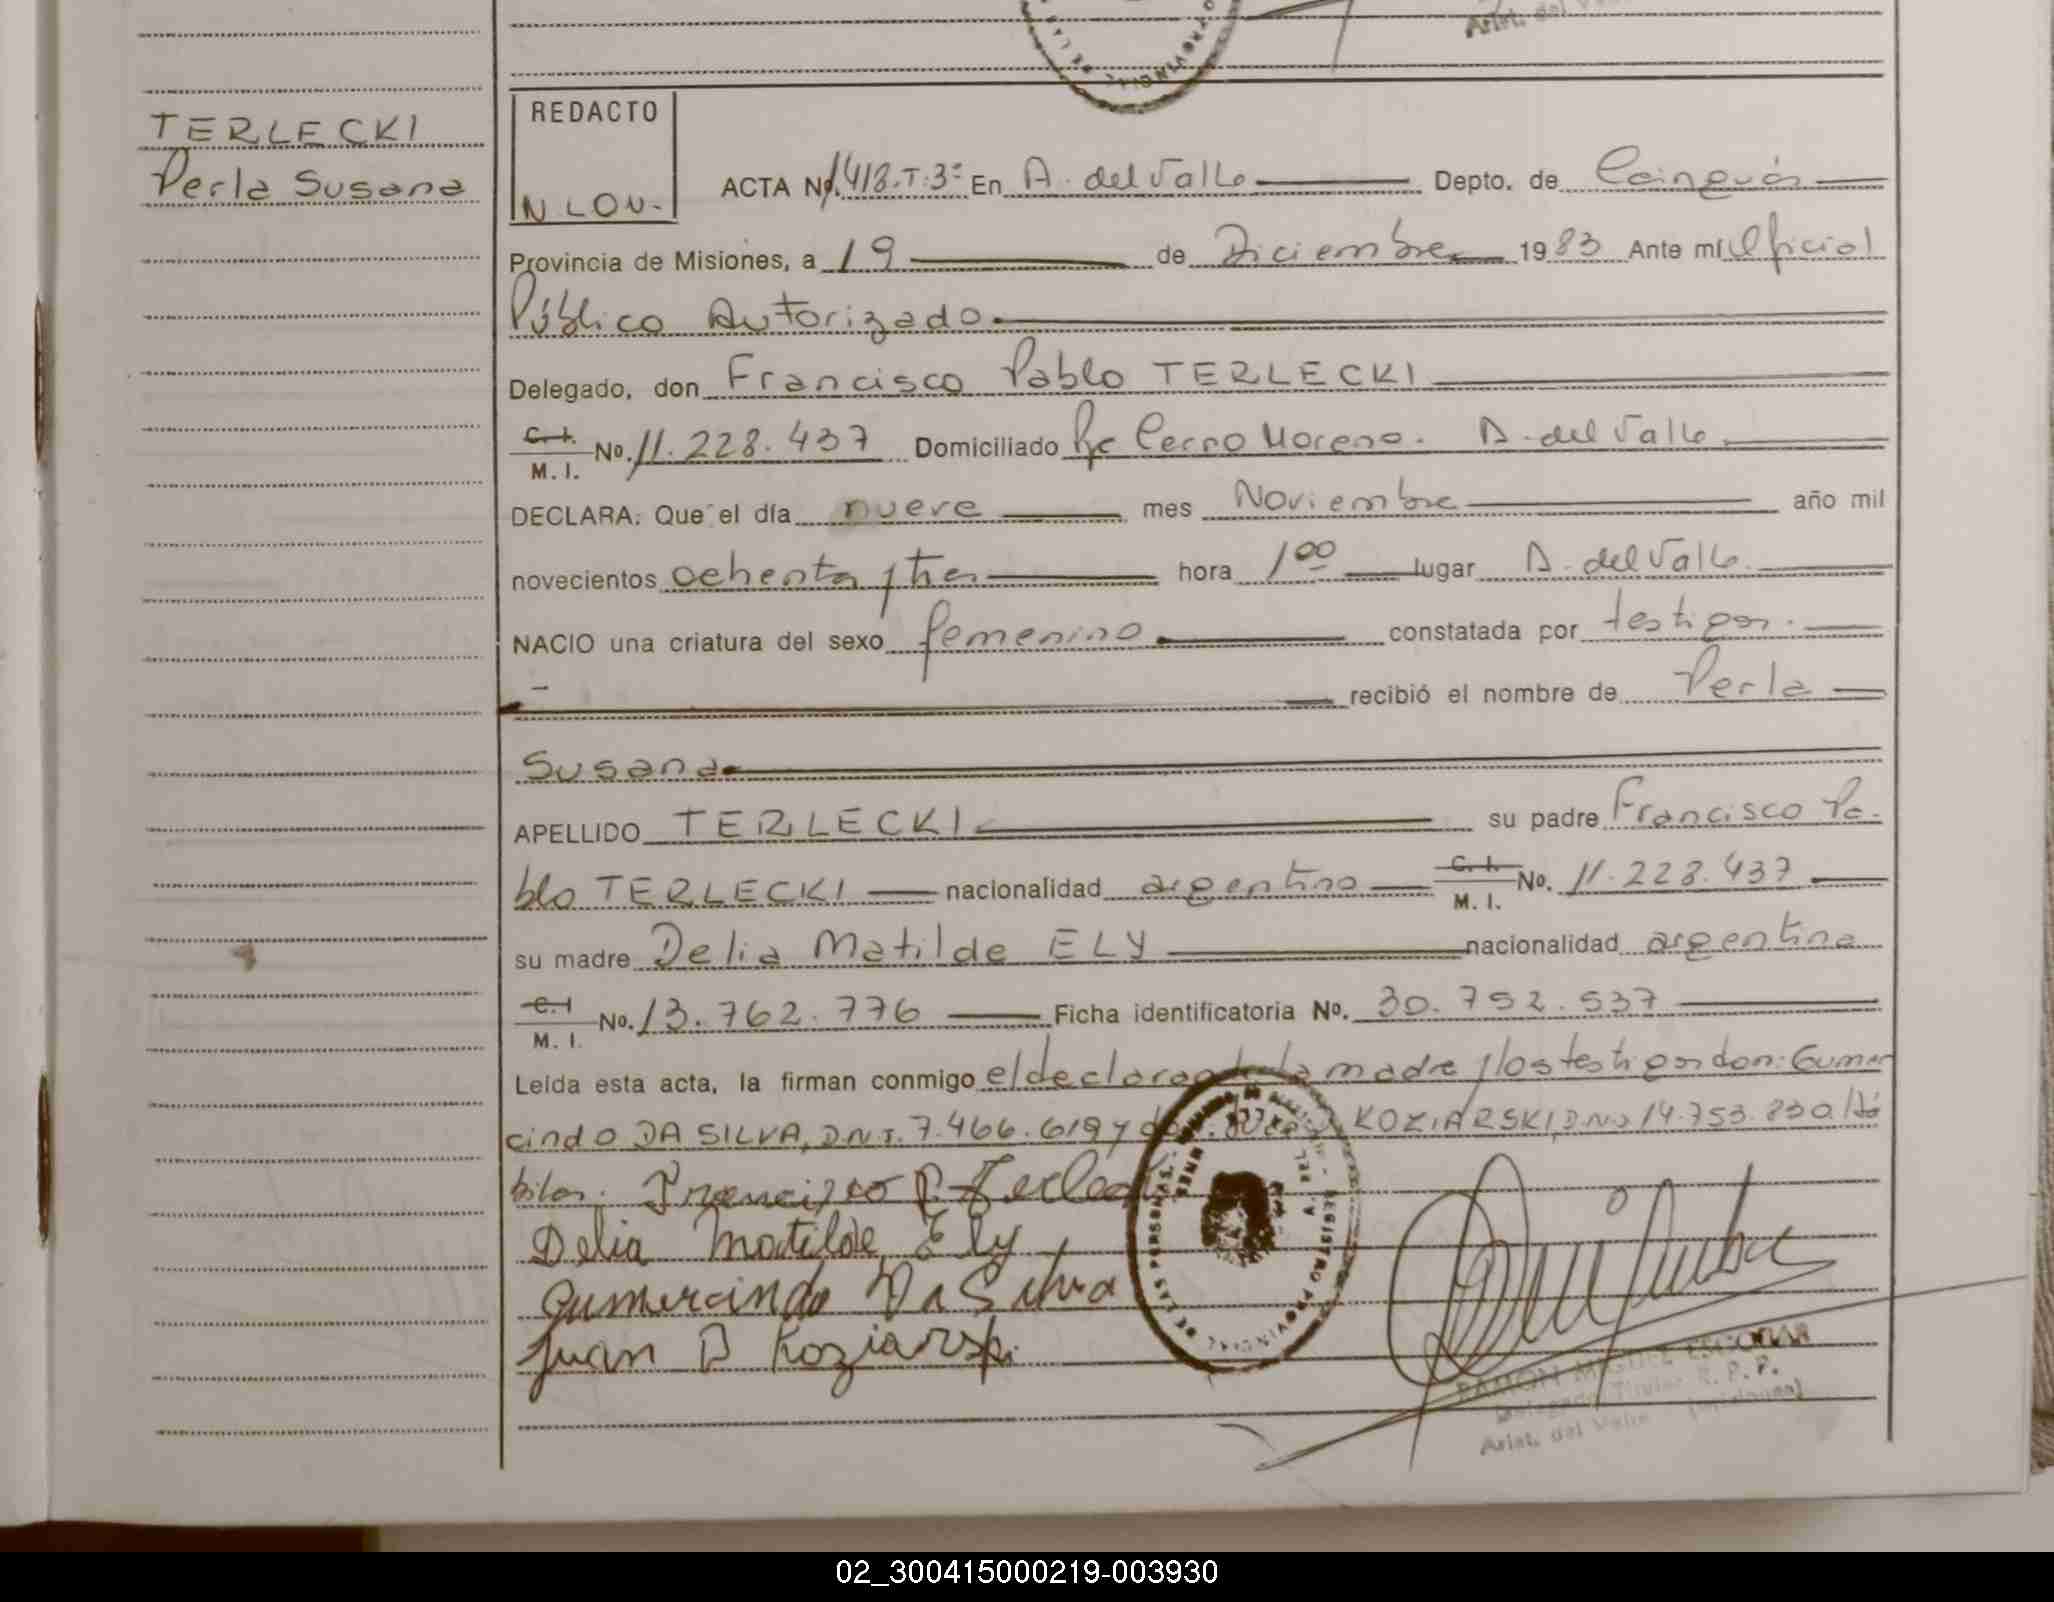 TERLECKI
Perla Susana
REDACTO
N LOV.
ACTA Nº. 1418.T.3º En A. del Valle Depto. de Cainguás
Provincia de Misiones, a 19 de Diciembre 1983 Ante mí Oficial
Público Autorizado
Delegado, don Francisco Pablo TERLECKI
C. I.
M. I. No. 11.228.437 Domiciliado Pje Cerro Moreno. A. del Valle
DECLARA: Que el día nueve mes Noviembre año mil
novecientos ochenta y tres hora 1 00 lugar A. del Valle.
NACIO una criatura del sexo femenino constatada por testigos.
recibió el nombre de Perla
Susana
APELLIDO TERLECKI su padre Francisco Pa-
blo TERLECKI nacionalidad argentino C. I. M. I. No. 11.228.437
su madre Delia Matilde ELY nacionalidad argentina
C. I
M. I. No. 13.762.776 Ficha identificatoria No. 30.752.537
Leída esta acta, la firman conmigo el declarante la madre y los testigos don: Gumer
cindo DA SILVA, D.N.I. 7.466.619 y KOZIARSKI, D.N.I 14.753.830. Há
biles. Francisco P. Terlecki
Delia Matilde Ely
Gumercindo Da Silva
Juan B Koziarski.
REGISTRO PROVINCIAL DE LAS PERSONAS
RAMON MIGUEL ESCOBAR
Delegado Titular R. P. P.
Arist. del Valle (Misiones)
02_300415000219-003930